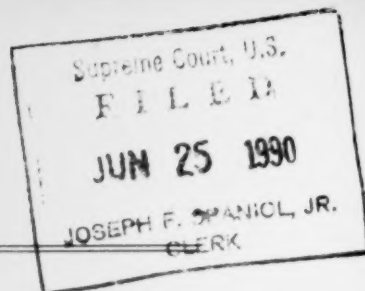 Supreme Court, U.S.
FILED
JUN 25 1990
JOSEPH F. SPANIOL, JR.
CLERK